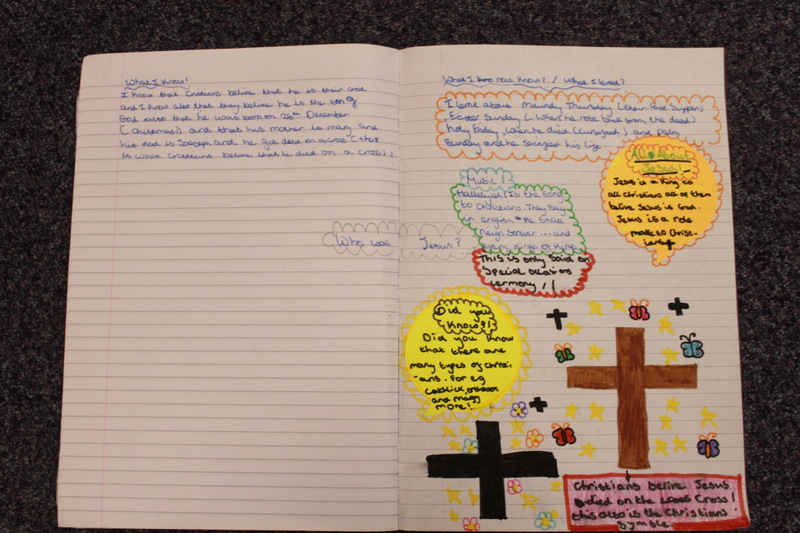 What I Know!
I know that Cristians believe that he is their God
and I know also that they believe he is the son of
God also that he was born on 25th December
(Christmas) and that his mother is mary and
his dad is Joseph and he died on a cross (that
is what cristians believe that he died on a cross)!
Who was Jesus?
What I Know now Know? / What I lernd?
I lernt about Maundy Thursday (their last Supper)
Easter Sunday (When he rose back from the dead)
Holy Friday (when he died) and Palm
Sunday and he his life.
All About
Jesus!
Jesus is a King to
all Christians all of them
belive Jesus is God.
Jesus is a role
model to Christ
ians
Music!
Hallelujah! Is the Song
to Christians. They Say
in english, He Shall
reign forever ... and
ever. King of Kings
This is only Said on
Special Occasions
cermony!!
Did you
Know?!
Did you Know
that there are
many types of Christi
-ans. For eg
Catholick, orthodox
and many
more!
Christians belive Jesus
died on the Cross!
this also is the Christians
Symble.